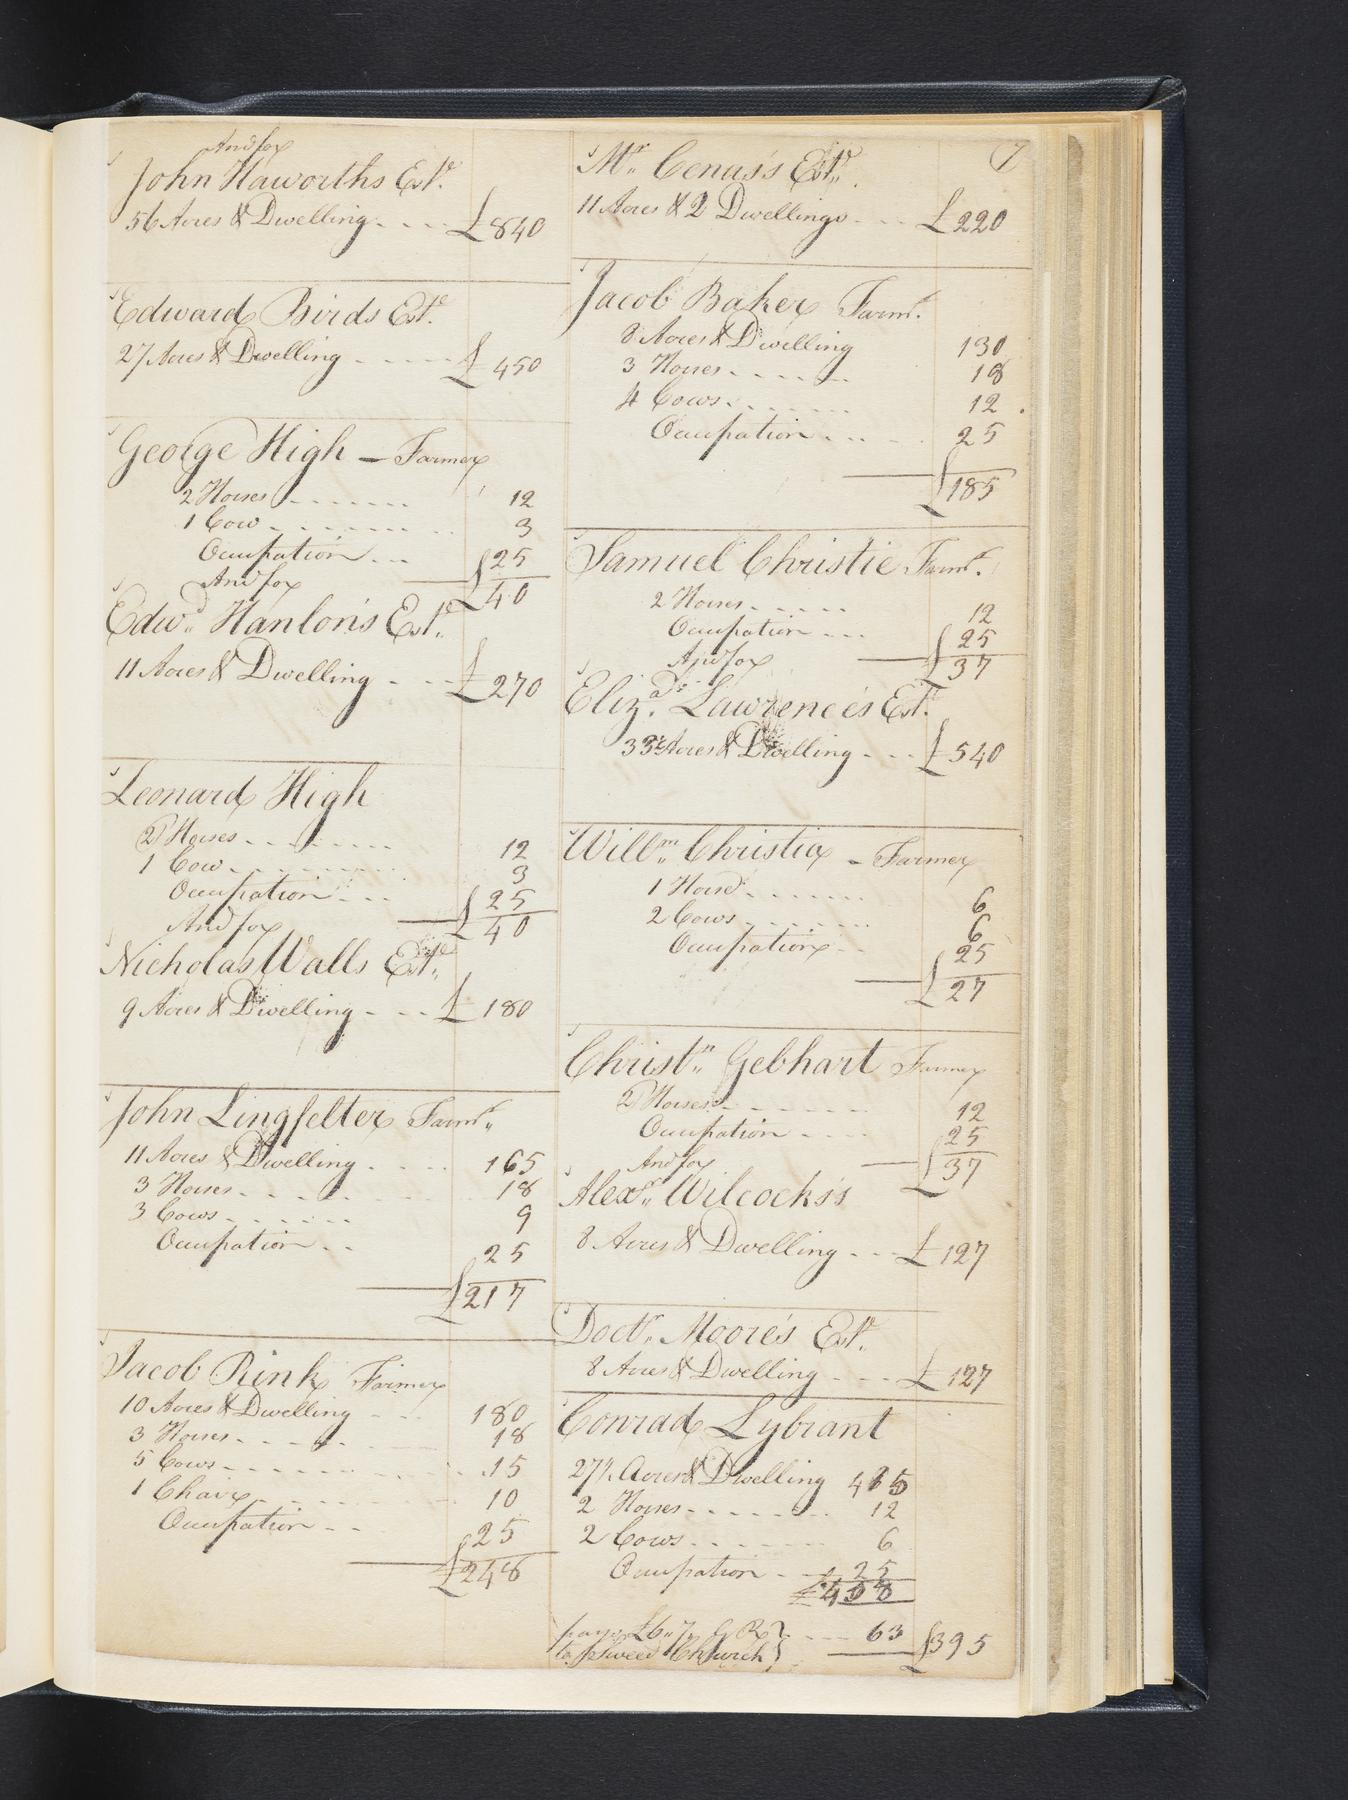 And for
John Haworths Estᵉ.
56 Acres & Dwelling - - - - £840
Edward Birds Estᵉ.
27 Acres & Dwelling - - - - - £ 450
George High — Farmer
2 Horses - - - - - - - 12
1 Cow - - - - - - - - - 3
Occupation - - - 25
£40
And for
Edwᵈ. Hanlon's Estᵉ.
11 Acres & Dwelling - - - £270
Leonard High
2 Horses - - - - - - - - - 12
1 Cow - - - - - - - - - 3
Occupation - - - 25
£40
And for
Nicholas Walls Estᵉ.
9 Acres & Dwelling - - - £ 180
John Lingfelter Farmʳ.
11 Acres & Dwelling - - - - 165
3 Horses - - - - - - - 18
3 Cows - - - - - - 9
Occupation - - 25
£217
Jacob Rink Farmer
10 Acres & Dwelling - - - 180
3 Horses - - - - - - 18
5 Cows - - - - - - - - - 15
1 Chair - - - - - - - - 10
Occupation - - 25
£248
7
Mʳ. Cenas's Estᵉ.
11 Acres & 2 Dwellings - - - £220
Jacob Baker Farmʳ.
8 Acres & Dwelling 130
3 Horses - - - - - - - 18
4 Cows - - - - - - - 12
Occupation - - - - 25
£185
Samuel Christie Farmʳ.
2 Horses - - - - - 12
Occupation - - - 25
£37
And for
Elizᵃ. Lawrence's Estᵉ.
33 Acres & Dwelling - - - £540
Willᵐ. Christia - Farmer
1 Horse - - - - - - - 6
2 Cows - - - - - - - 6
Occupation - - 25
£27
Christⁿ. Gebhart Farmer
2 Horses - - - - - - - 12
Occupation - - - - 25
£37
And for
Alexʳ. Wilcocks's
8 Acres & Dwelling - - - £127
Doctʳ. Moore's Estᵉ.
8 Acres & Dwelling - - - £127
Conrad Lybrant
27½ Acres & Dwelling 415
2 Horses - - - - - - - - 12
2 Cows - - - - - - - 6
Occupation - 25
£458
pays £6,,7,, G R
to Sweed Church - - - 63 £395